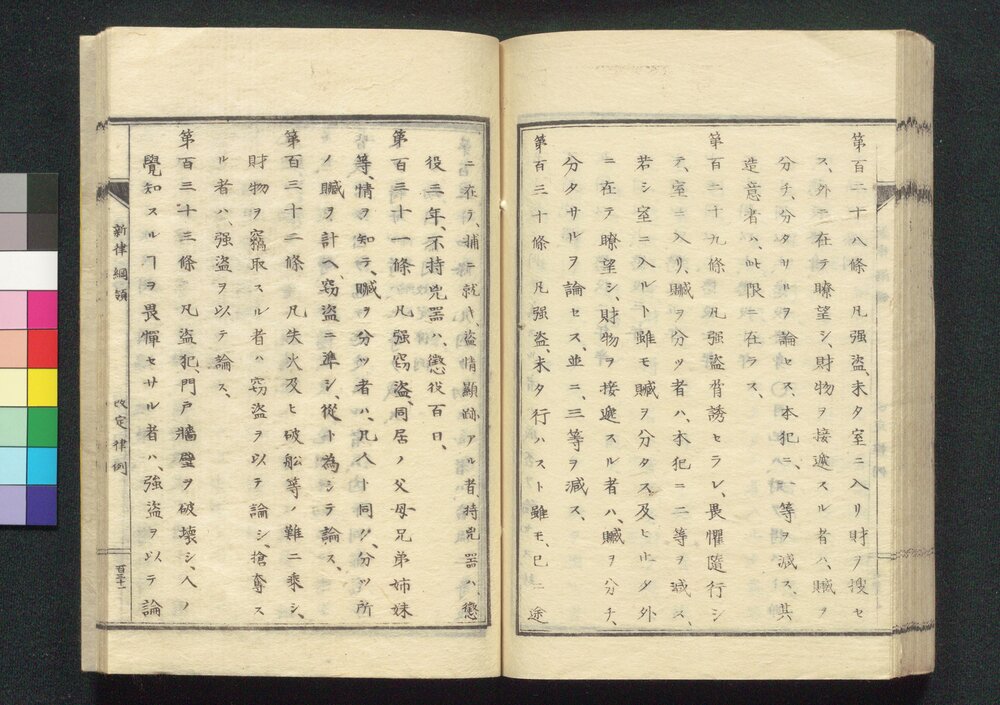 第百二十八條　凡強盜、未タ室ニ入リ財ヲ搜セ
ス、外ニ在テ瞭望シ、財物ヲ接遞スル者ハ、贓ヲ
分チ、分タサルヲ論セス、本犯ニ、一等ヲ減ス、其
造意者ハ、此限ニ在ラス、
第百二十九條　凡強盜脅誘セラレ、畏懼隨行シ
テ、室ニ入リ、贓ヲ分ツ者ハ、本犯ニ二等ヲ減ス、
若シ室ニ入ルト雖モ贓ヲ分タス、及ヒ止タ外
ニ在テ瞭望シ、財物ヲ接遞スル者ハ、贓ヲ分チ、
分タサルヲ論セス、並ニ、三等ヲ減ス、
第百三十條　凡強盜、未タ行ハスト雖モ、已ニ途
ニ在テ、捕ニ就キ、盜情顯跡アル者、持兇器ハ、懲
役三年、不持兇器ハ、懲役百日、
第百三十一條　凡強竊盜、同居ノ父母兄弟姉妹
等、情ヲ知テ、贓ヲ分ツ者ハ、凡人ト同ク、分ツ所
ノ贓ヲ計ヘ、窃盜ニ準シ、從ト為シテ論ス、
第百三十二條　凡失火及ヒ破船等ノ難ニ乘シ、
財物ヲ竊取スル者ハ、窃盜ヲ以テ論シ、搶奪ス
ル者ハ、强盜ヲ以テ論ス、
第百三十三條　凡盜犯、門戸牆壁ヲ破壞シ、人ノ
覺知スルヿヲ畏憚セサル者ハ、強盜ヲ以テ論
新律綱領　改定律例　百三十一